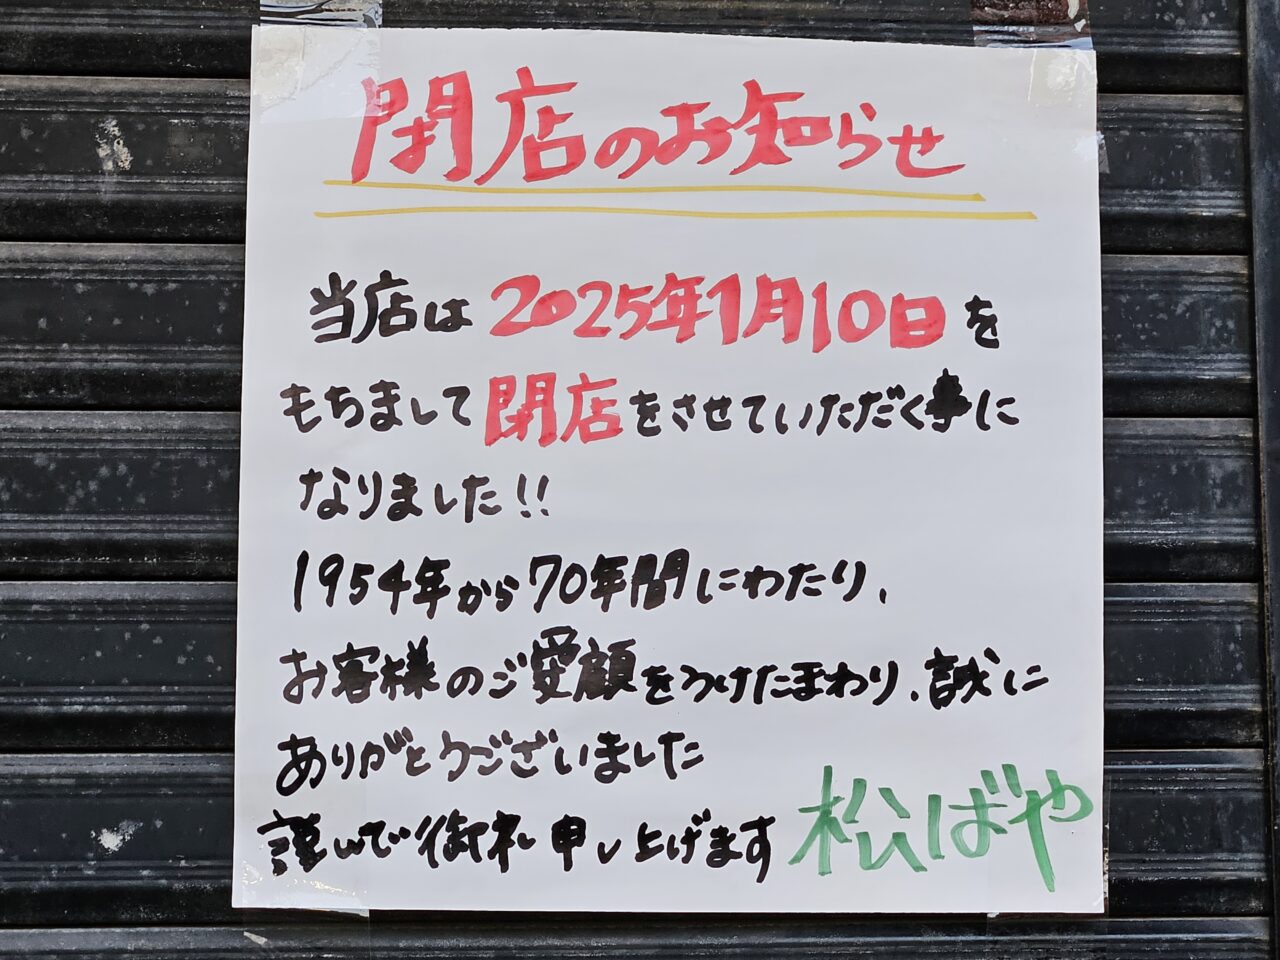 閉店のお知らせ
当店は2025年1月10日を
もちまして閉店をさせていただく事に
なりました!!
1954年から70年間にわたり、
お客様のご愛顧をうけたまわり、誠に
ありがとうございました
謹んで御礼申し上げます 松ばや